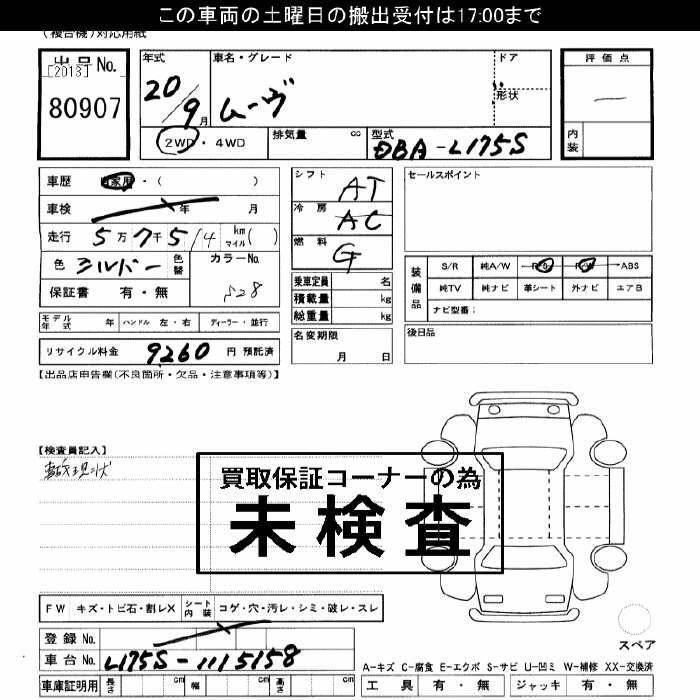 この車両の土曜日の搬出受付は17:00まで
(複合機)対応用紙
出品No. [2013]
80907
年式 車名・グレード ドア
20/9月 ムーヴ 形状
2WD・4WD 排気量 cc 型式 DBA-L175S
評価点
内装
車歴 自家用・( )
車検 年 月
走行 5万7千5/4 km マイル( )
色 シルバー 色替 カラーNo. S28
保証書 有・無
シフト AT
冷房 AC
燃料 G
乗車定員 名
積載量 kg
総重量 kg
名変期限
月 日
セールスポイント
装備品 S/R 純A/W P/S P/W ABS
純TV 純ナビ 革シート 外ナビ エアB
ナビ型番:
後日品
モデル年式 年 ハンドル 左・右 ディーラー・並行
リサイクル料金 9260 円 預託済
【出品店申告欄(不良箇所・欠品・注意事項等)】
【検査員記入】
現状
買取保証コーナーの為
未検査
FW キズ・トビ石・割レX シート内装 コゲ・穴・汚レ・シミ・破レ・スレ
登録No.
車台No. L175S-1115158
車庫証明用 長さ cm 幅 cm 高さ cm
スペア
A-キズ C-腐食 E-エクボ S-サビ U-凹ミ W-補修 XX-交換済
工具 有・無 ジャッキ 有・無